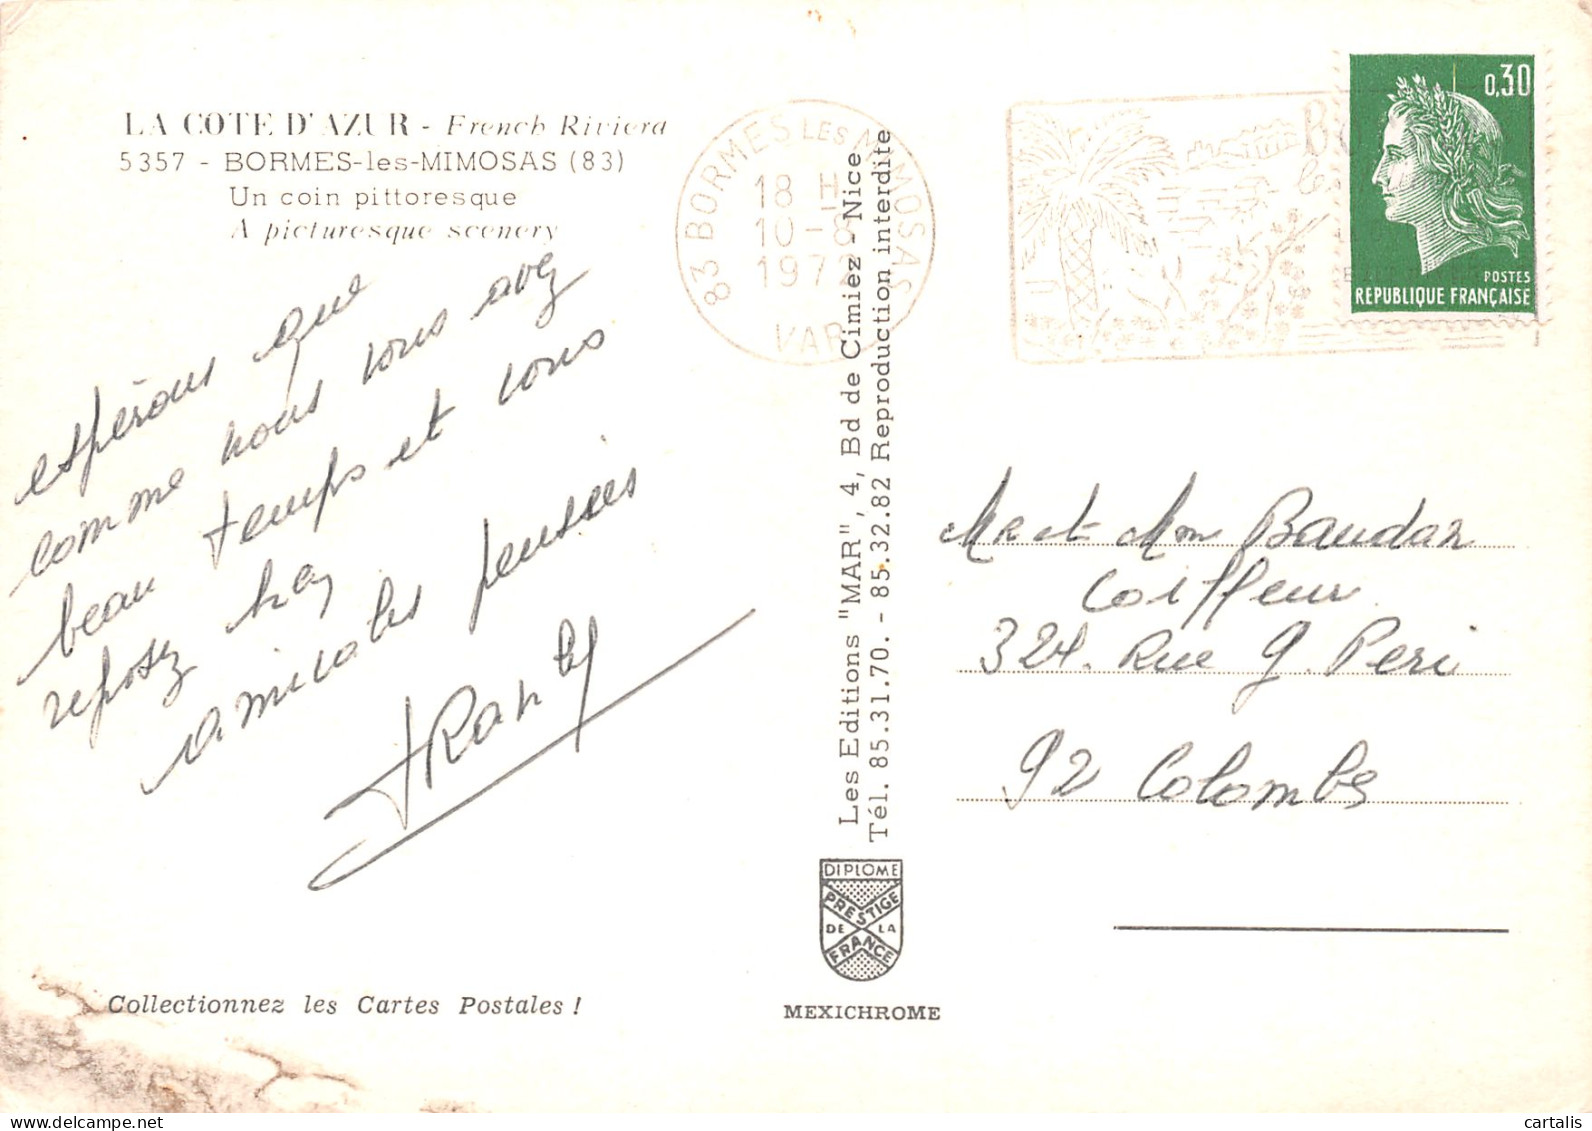 LA COTE D'AZUR - French Riviera
5357 - BORMES-les-MIMOSAS (83)
Un coin pittoresque
A picturesque scenery
espérons que
comme nous vous avez
beau temps et vous
reposez
amicales pensées
83 BORMES LES MIMOSAS
18 H
10-8
1972
VAR
0,30
POSTES
REPUBLIQUE FRANÇAISE
Les Editions "MAR", 4, Bd de Cimiez - Nice
Tél. 85.31.70. - 85.32.82 Reproduction interdite
Mr et Mm Baudan
Coiffeur
324. Rue G. Peri
92 Colombes
DIPLOME
PRESTIGE
DE LA
FRANCE
MEXICHROME
Collectionnez les Cartes Postales !
cartalis